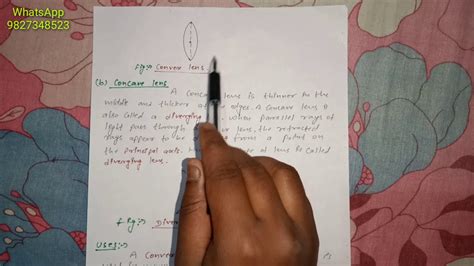 WhatsApp
9827348523
fig:- Convex lens
(b) Concave lens
A Concave lens is thinner to the
middle and thicker at edges. A Concave lens is
also called a diverging when parallel rays of
light pass through lens, the refracted
rays appear to be from a point on
the principal axis. of lens is called
diverging lens.
fig:-
Uses:-
A